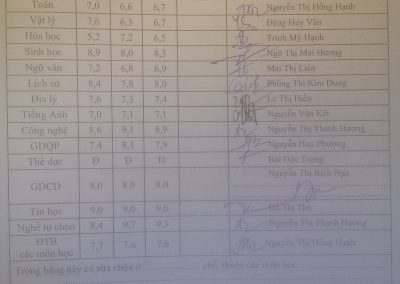 Toán 7,0 6,6 6,7 Nguyễn Thị Hồng Hạnh
Vật lý 7,6 6,3 6,7 Đặng Huy Văn
Hóa học 5,2 7,2 6,5 Trịnh Mỹ Hạnh
Sinh học 8,9 8,0 8,3 Ngô Thị Mai Hương
Ngữ văn 7,2 6,8 6,9 Mai Thị Liên
Lịch sử 8,4 7,8 8,0 Phùng Thị Kim Dung
Địa lý 7,6 7,3 7,4 Lê Thị Hiền
Tiếng Anh 7,0 7,3 7,1 Nguyễn Văn Kết
Công nghệ 8,6 9,1 8,9 Nguyễn Thị Thanh Hương
GDQP 7,4 8,1 7,9 Nguyễn Huy Phương
Thể dục Đ Đ Đ Bùi Đức Trung
GDCD 8,0 8,0 8,0 Nguyễn Thị Bích Nga
Tin học 9,0 9,0 9,0 Đỗ Thị Thu
Nghề tự chọn 8,4 9,7 9,3 Nguyễn Thị Thanh Hương
ĐTB các môn học 7,7 7,6 7,6 Nguyễn Thị Hồng Hạnh
Trong bảng này có sửa chữa ở chỗ, thuộc các môn học: